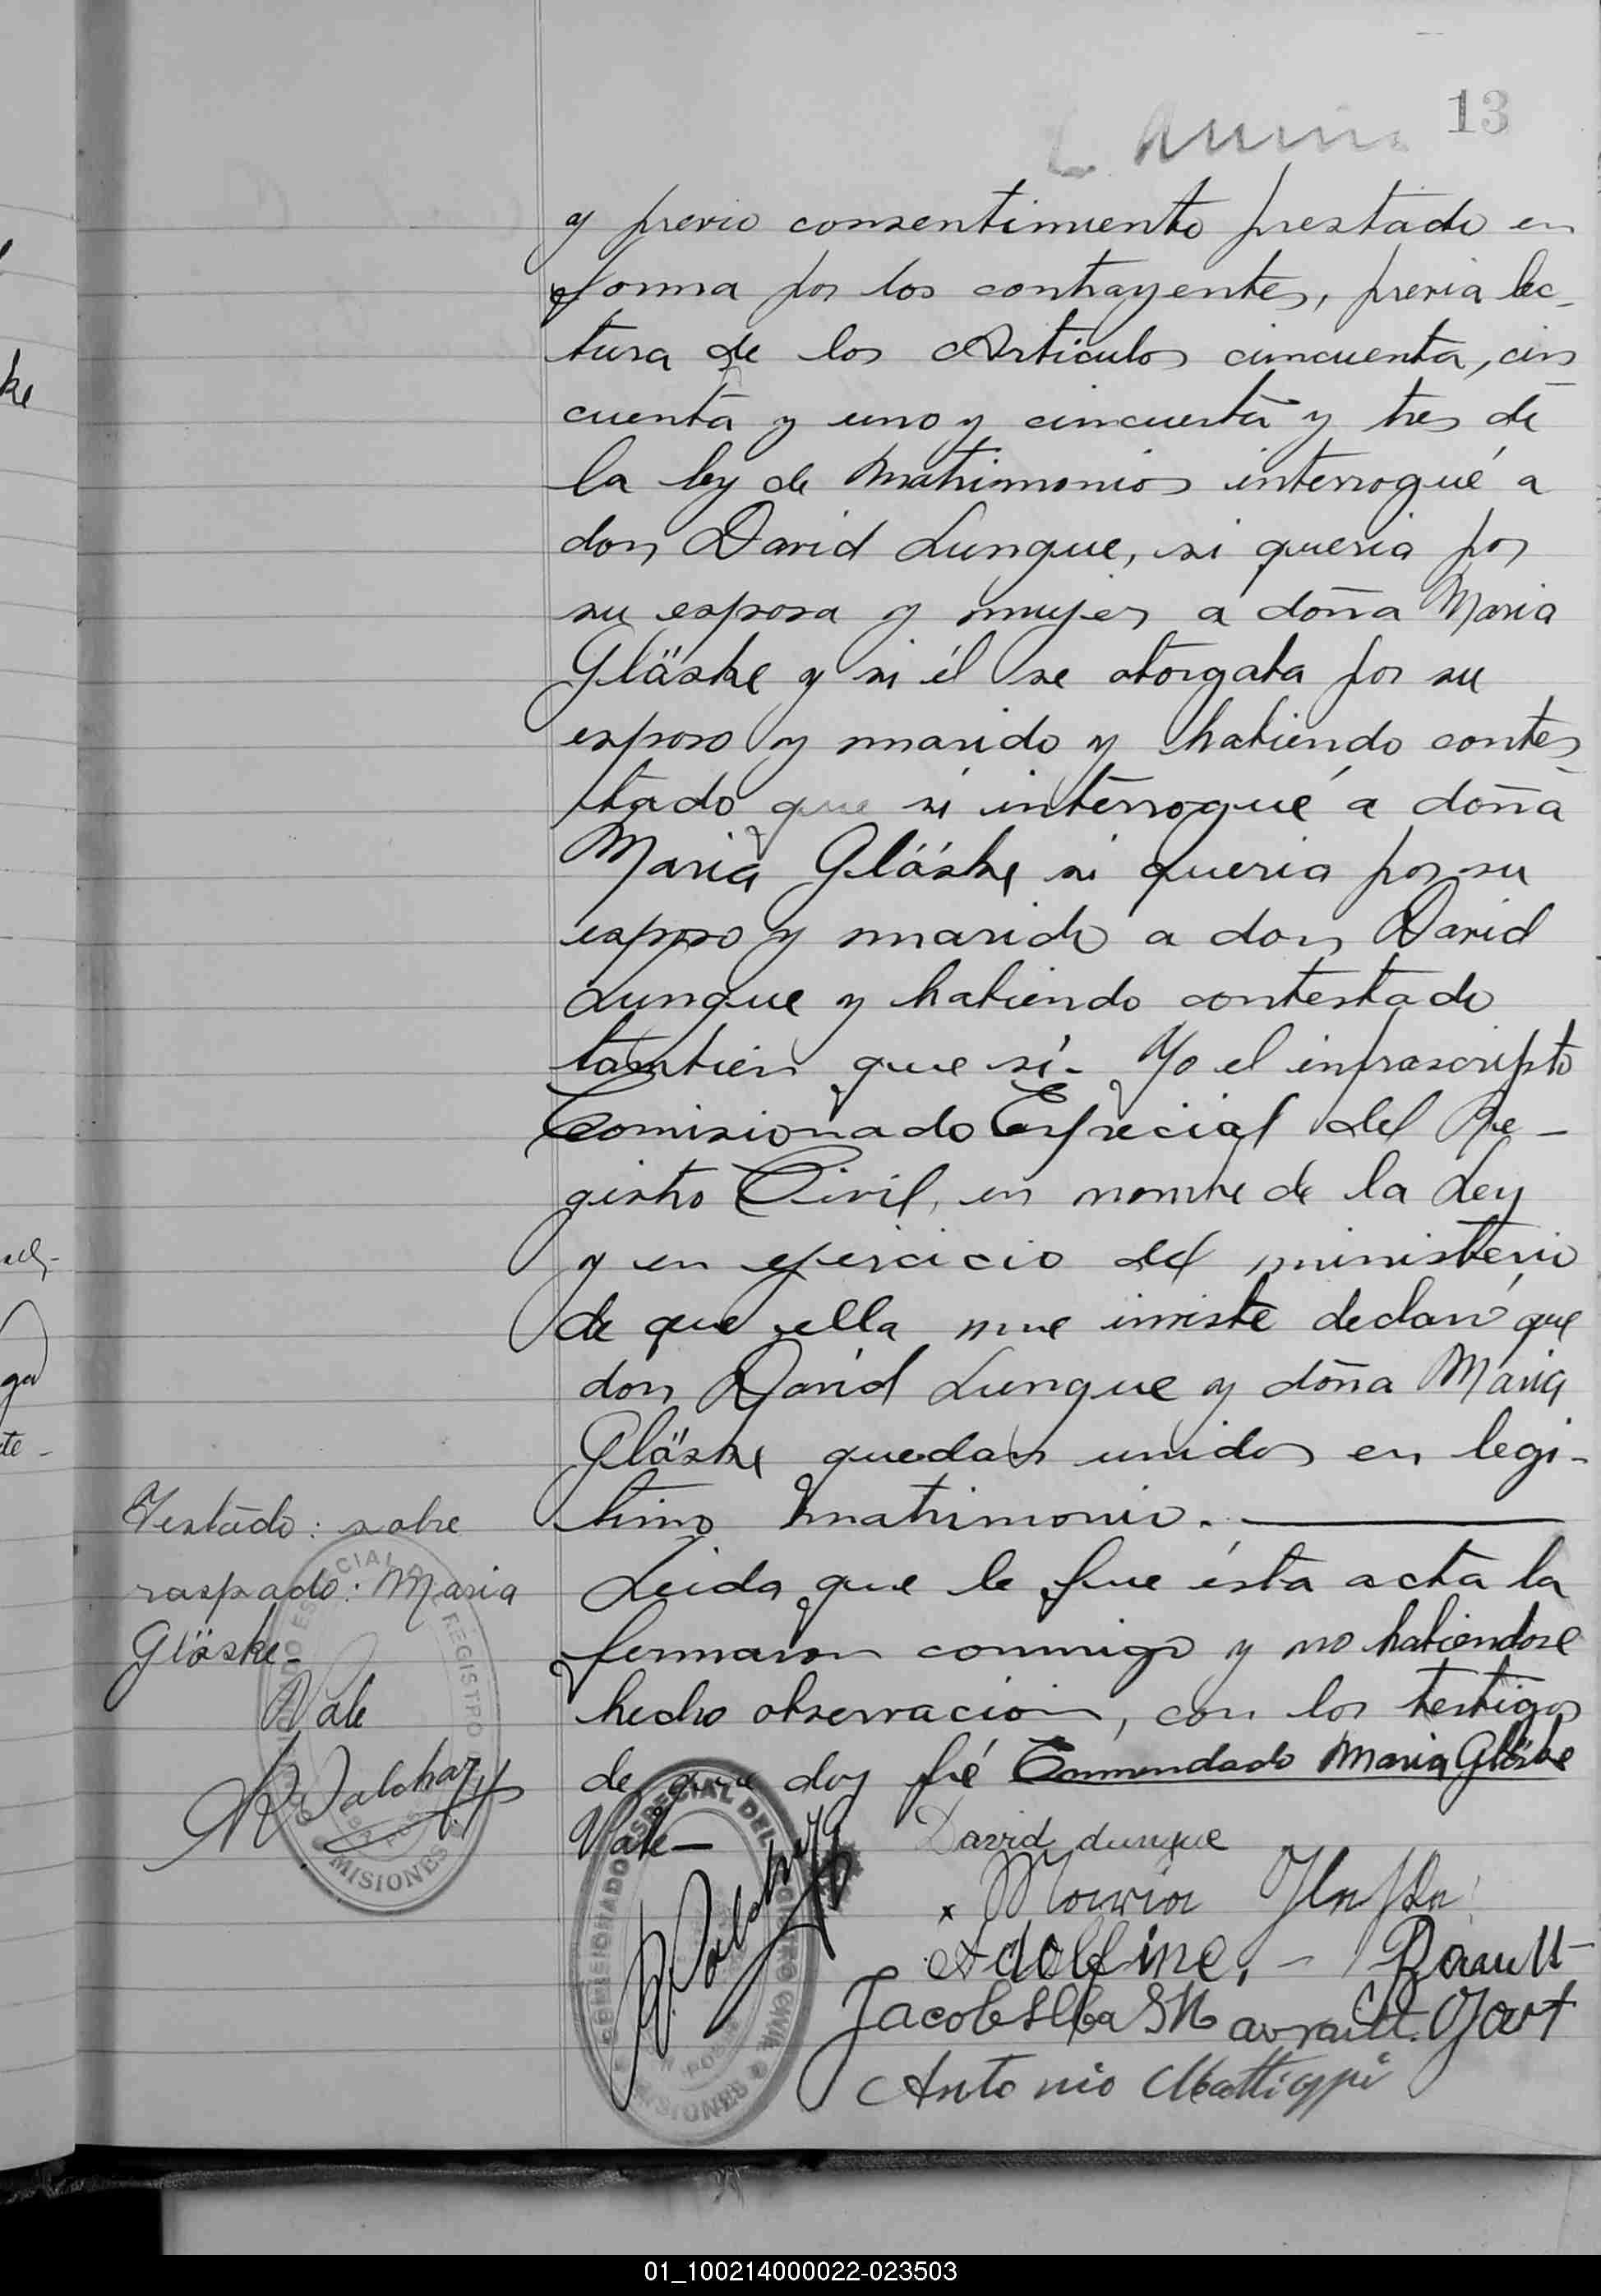 13
y previo consentimiento prestado en
forma por los contrayentes, previa lec-
tura de los Articulos cincuenta, cin
cuenta y uno y cincuenta y tres de
la ley de Matrimonios interrogué a
don David Lungue, si queria por
su esposa y mujer a doña Maria
Gläske y si él se otorgaba por su
esposo y marido y habiendo contes
tado que si interrogué a doña
Maria Gläske si queria por su
esposo y marido a don David
Lungue y habiendo contestado
tambien que sí - Yo el infrascripto
Comisionado Especial del Re-
gistro Civil, en nombre de la Ley
y en ejercicio del ministerio
de que ella me inviste declaré que
don David Lungue y doña Maria
Gläske quedan unidos en legi-
timo matrimonio.
Leida que le fue ésta acta la
firmaron conmigo y no habiendose
hecho observacion, con los testigos
de que doy fé Enmendado Maria Gläske
Vale
Testado: sobre
raspado: Maria
Gläske-
Vale
ESPECIAL REGISTRO
MISIONES
COMISIONADO ESPECIAL DEL REGISTRO CIVIL
MISIONES
David Lungue
x Maria
Adolfine
Jacob
Antonio
01_100214000022-023503